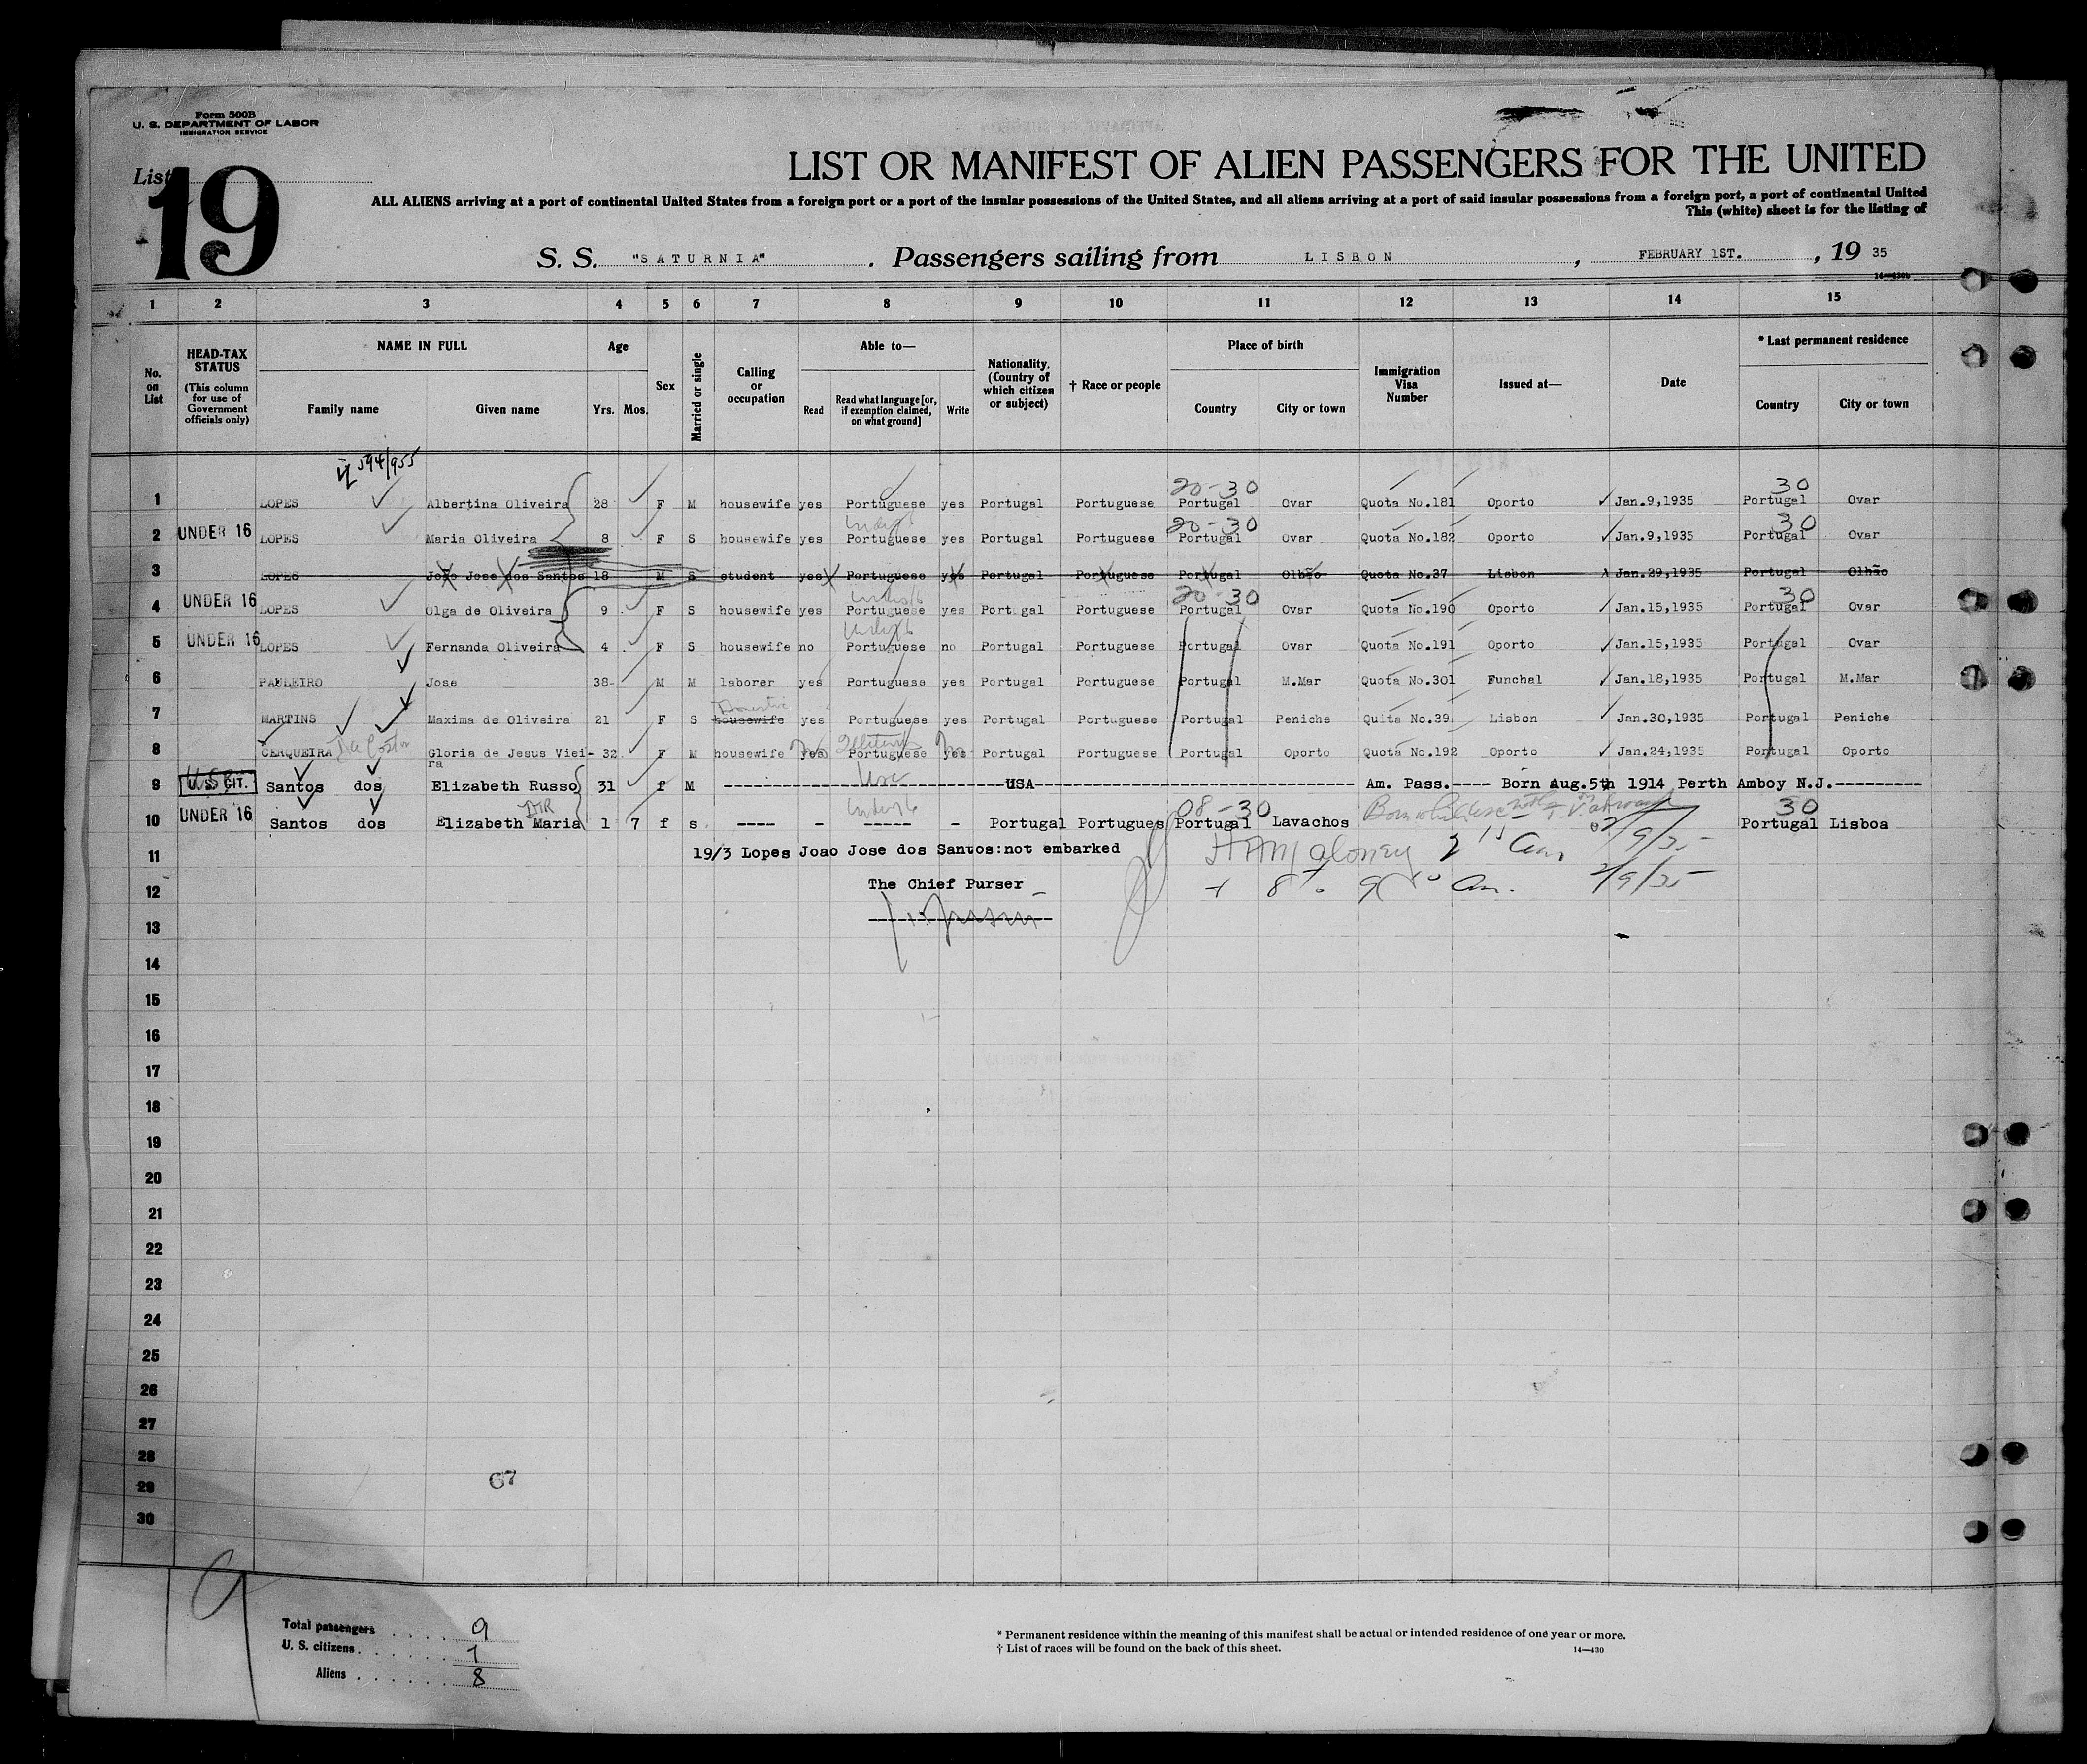 Form 500B
U. S. DEPARTMENT OF LABOR
IMMIGRATION SERVICE
List 19
LIST OR MANIFEST OF ALIEN PASSENGERS FOR THE UNITED
ALL ALIENS arriving at a port of continental United States from a foreign port or a port of the insular possessions of the United States, and all aliens arriving at a port of said insular possessions from a foreign port, a port of continental United
This (white) sheet is for the listing of
S. S. "SATURNIA". Passengers sailing from LISBON, FEBRUARY 1ST., 19 35
14—430b
1 2 3 4 5 6 7 8 9 10 11 12 13 14 15
No. on List
HEAD-TAX STATUS (This column for use of Government officials only)
NAME IN FULL
Family name Given name
Age
Yrs. Mos.
Sex
Married or single
Calling or occupation
Able to—
Read Read what language [or, if exemption claimed, on what ground] Write
Nationality. (Country of which citizen or subject)
† Race or people
Place of birth
Country City or town
Immigration Visa Number
Issued at—
Date
* Last permanent residence
Country City or town
594/955
20-30 30
1 LOPES Albertina Oliveira 28 F M housewife yes Portuguese yes Portugal Portuguese Portugal Ovar Quota No.181 Oporto Jan.9,1935 Portugal Ovar
Under 16 20-30 30
2 UNDER 16 LOPES Maria Oliveira 8 F S housewife yes Portuguese yes Portugal Portuguese Portugal Ovar Quota No.182 Oporto Jan.9,1935 Portugal Ovar
3 LOPES João Jose dos Santos 18 M S student yes Portuguese yes Portugal Portuguese Portugal Olhão Quota No.37 Lisbon Jan.29,1935 Portugal Olhão
Under 16 20-30 30
4 UNDER 16 LOPES Olga de Oliveira 9 F S housewife yes Portuguese yes Portugal Portuguese Portugal Ovar Quota No.190 Oporto Jan.15,1935 Portugal Ovar
Under 16
5 UNDER 16 LOPES Fernanda Oliveira 4 F S housewife no Portuguese no Portugal Portuguese Portugal Ovar Quota No.191 Oporto Jan.15,1935 Portugal Ovar
6 PAULEIRO Jose 38 M M laborer yes Portuguese yes Portugal Portuguese Portugal M.Mar Quota No.301 Funchal Jan.18,1935 Portugal M.Mar
Domestic
7 MARTINS Maxima de Oliveira 21 F S housewife yes Portuguese yes Portugal Portuguese Portugal Peniche Quita No.39 Lisbon Jan.30,1935 Portugal Peniche
8 CERQUEIRA Da Costa Gloria de Jesus Viei-ra 32 F M housewife yes No Portuguese yes No Portugal Portuguese Portugal Oporto Quota No.192 Oporto Jan.24,1935 Portugal Oporto
9 U.S. CIT. Santos dos Elizabeth Russo 31 f M USC USA Am. Pass. Born Aug.5th 1914 Perth Amboy N.J.
DTR Under 16 08-30 30
10 UNDER 16 Santos dos Elizabeth Maria 1 7 f s ---- - ----- - Portugal Portugues Portugal Lavachos Portugal Lisboa
11 19/3 Lopes Joao Jose dos Santos:not embarked 2/9/35
12 The Chief Purser 2/9/35
13
14
15
16
17
18
19
20
21
22
23
24
25
26
27
28
29
30
67
9
Total passengers 9
U. S. citizens 1
Aliens 8
* Permanent residence within the meaning of this manifest shall be actual or intended residence of one year or more.
† List of races will be found on the back of this sheet. 14—430